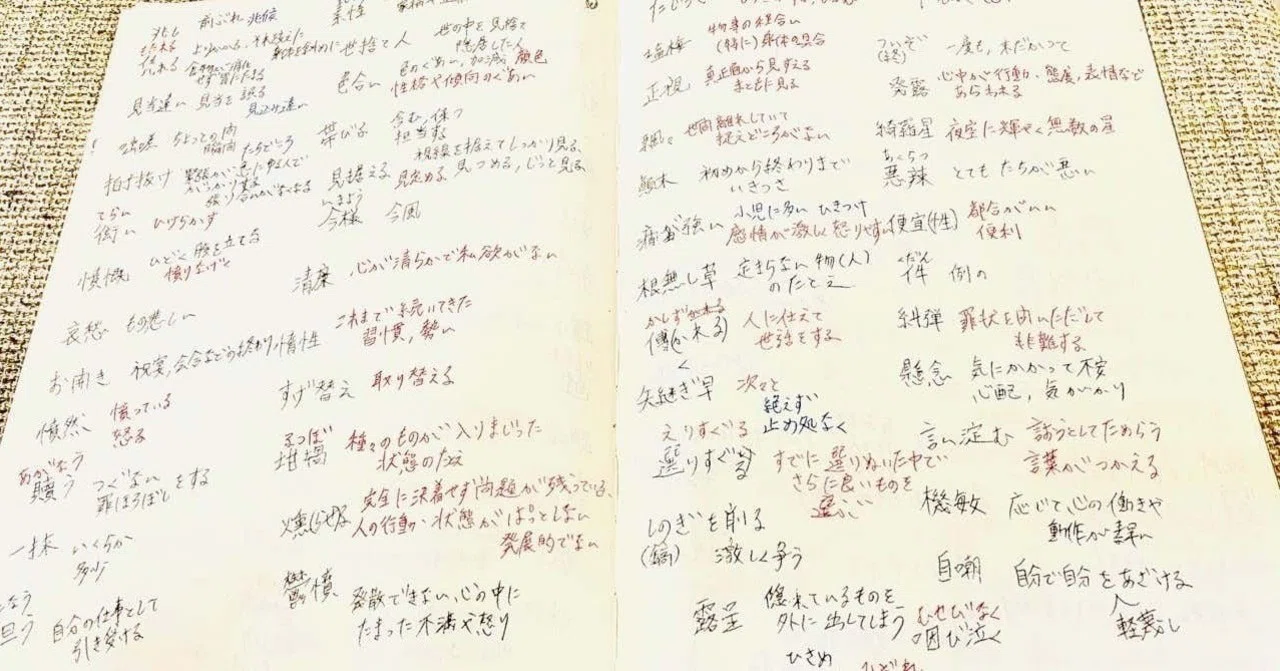 兆し 前ぶれ 兆候
見当違い 見当を誤る
見込み違い
ちょっとの間
瞬間 たちどころ
拍子抜け
てらい
衒い ひけらかす
憤慨 ひどく腹を立てる
憤りなげく
哀愁 もの悲しい
お開き 祝宴,会合などの終わり
憤然 憤っている
怒る
あがなう
贖う つぐない
罪ほろぼしをする
一抹 いくらか
多少
自分の仕事として
引き受ける
素性
世捨て人 世の中を見捨て
隠居した人
色合い 色のぐあい,加減 顔色
性格や傾向のぐあい
帯びる 含む,保つ
担当する
視線を据えてしっかり見る
見据える 見定める 見つめる,じっと見る
いまよう
今様 今風
清廉 心が清らかで私欲がない
惰性 これまで続いてきた
習慣,勢い
すげ替え 取り替える
るつぼ
坩堝 種々のものが入りまじった
状態のたとえ
燻らせる 完全に決着せず問題が残っている、
人の行動の、状態がぱっとしない
発展的でない
鬱憤 発散できない,心の中に
たまった不満や怒り
塩梅 物事の具合い
(特に)身体の具合
正視 真正面から見すえる
まともに見る
飄々 世間離れしていて
捉えどころがない
顛末 初めから終わりまで
いきさつ
癇癪強い 小児に多い ひきつけ
感情が激しく怒りやすい
根無し草 定まらない物(人)
のたとえ
かしず
傅(かれる) 人に仕えて
世話をする
矢継ぎ早 次々と
絶えず
止め処なく
えりすぐる
選りすぐる すでに選りぬいた中で
さらに良いものを
選ぶ
しのぎを削る
(鎬) 激しく争う
露呈 隠れているものを
外に出してしまう
ひさめ
ついぞ
(終) 一度も,未だかつて
発露 心中が行動、態度、表情など
あらわれる
綺羅星 夜空に輝やく無数の星
あくらつ
悪辣 とてもたちが悪い
便宜(性) 都合がいい
便利
くだん
件 例の
糾弾 罪状を問いただして
非難する
懸念 気にかかって不安
心配,気がかり
言い淀む 言おうとしてためらう
言葉がつかえる
機敏 応じて心の働きや
動作が素早い
自嘲 自分で自分をあざける
軽蔑し
むせびなく
咽び泣く